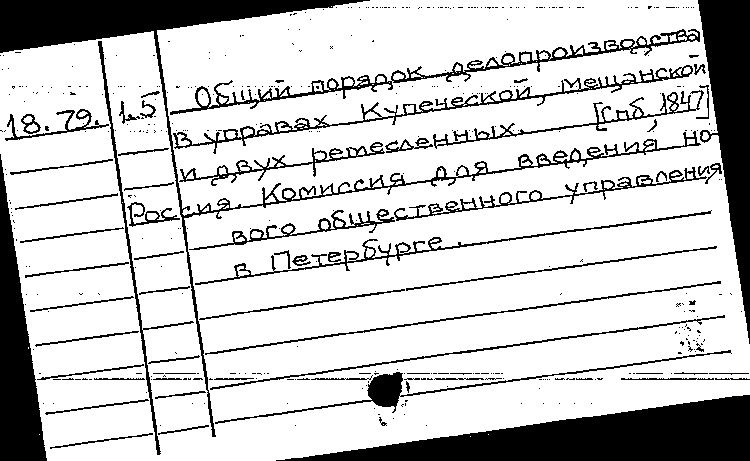 Общий порядок делопроизводства
18.79. 1.5 в управах Купеческой, Мещанской
и двух ремесленных. [Спб, 1847]
Россия. Комиссия для введения но-
вого общественного управления
в Петербурге.